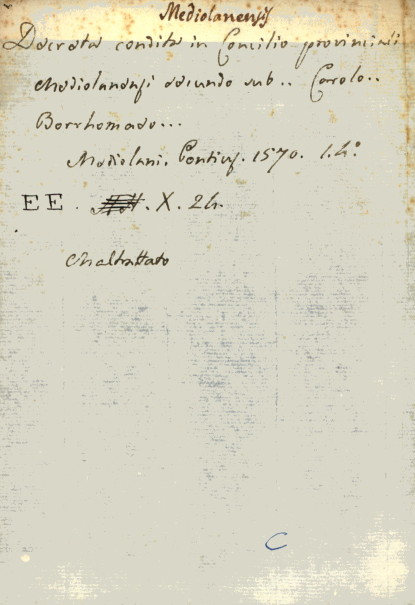 Mediolanensis
Decreta condita in Concilio provinciali
Mediolanensi secundo sub.. Carolo..
Borrhomaeo...
Mediolani. Pontius. 1570. in 4º
EE . . X. 24.
Maltrattato
C